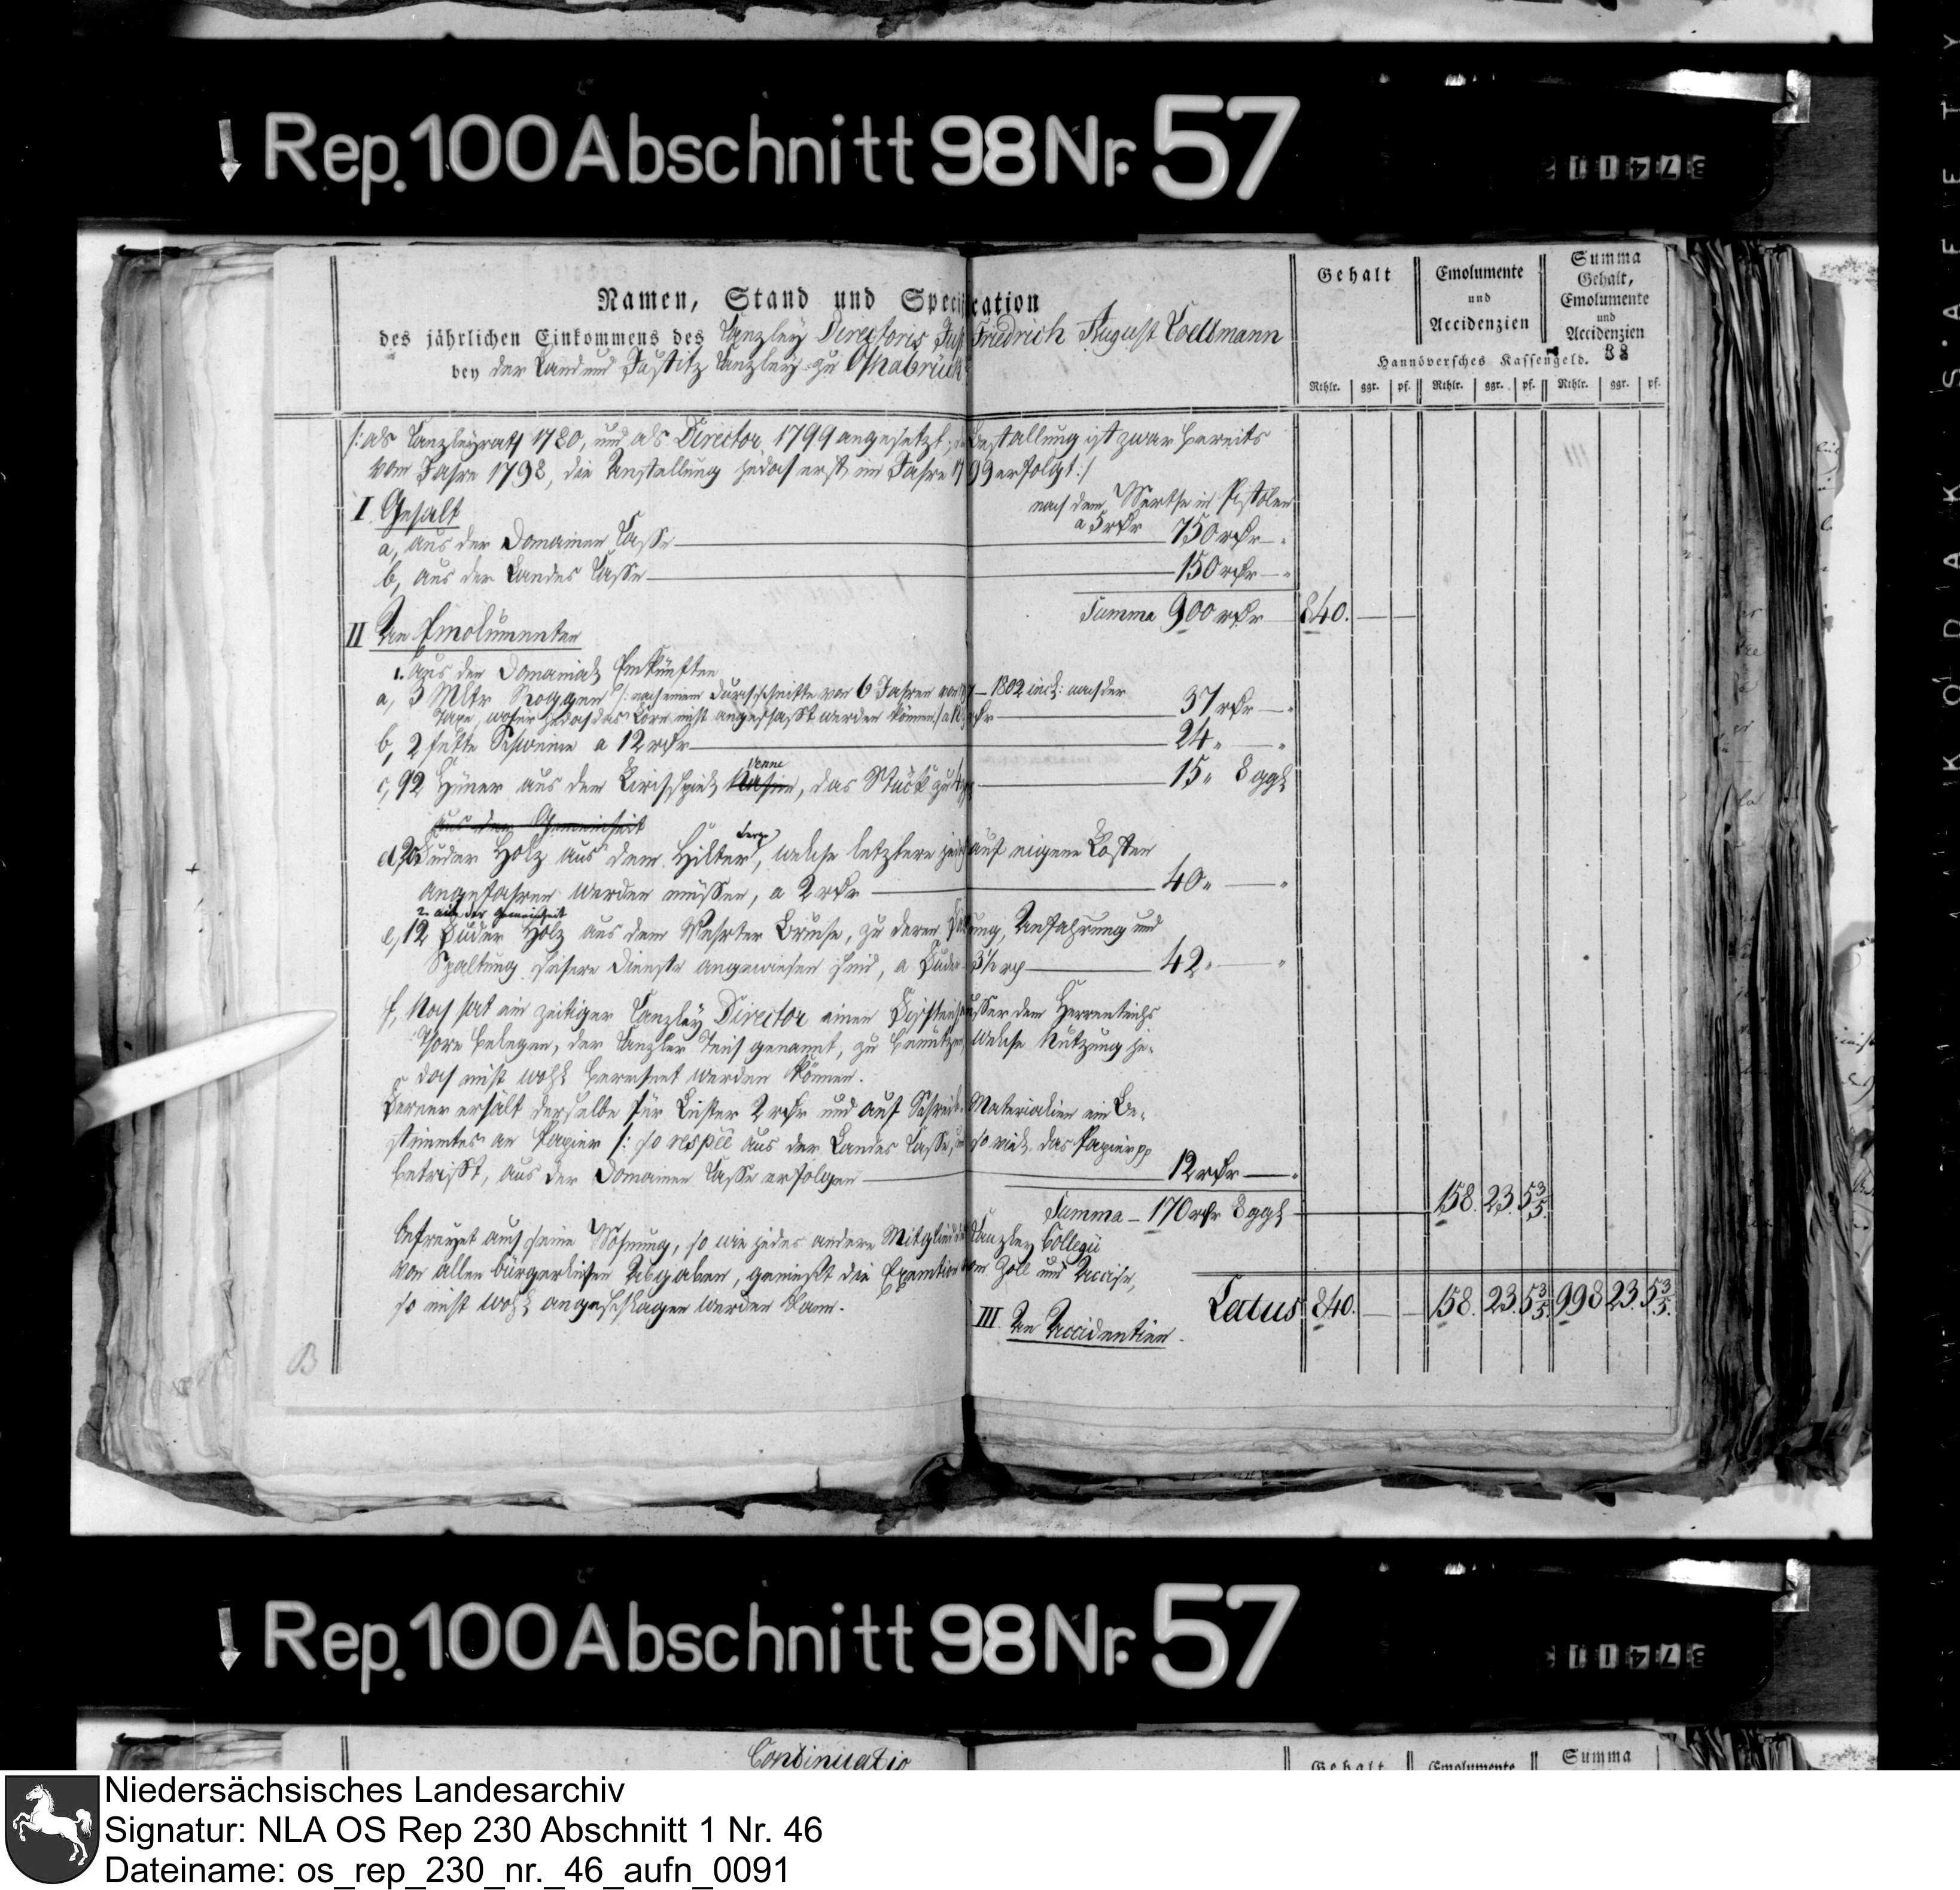 Rep. 100 Abschnitt 98 Nr. 57
37411
Namen, Stand und Specification
des jährlichen Einkommens des Canzley Directoris Just Friedrich August Lodtmann
bey der Land und Justitz Canzley zu Osnabrück
Gehalt
Emolumente
und
Accidenzien
Summa
Gehalt,
Emolumente
und
Accidenzien
88
Hannöversches Kassengeld.
Rthlr. ggr. pf. Rthlr. ggr. pf. Rthlr. ggr. pf.
/: als Canzleyrath 1780, und als Director 1799 angesetzt; die Bestallung ist zwar bereits
vom Jahre 1798, die Anstellung jedoch erst im Jahre 1799 erfolgt :/
I. Gehalt
nach dem Werthe in Pistolen
a 5 rthr
a, aus der Domainen Casse 750 rthr
b, aus der Landes Casse 150 rthr
Summa 900 rthr 840.
II An Emolumenten
1. aus den Domanial Einkünften
a, 3 Mltr Roggen /: nach einem Durchschnitte von 6 Jahren von 97 - 1802 incl: nach der
Taxe, wofür jedoch das Korn nicht angeschafft werden können :/ rthr 37 rthr
b, 2 fette Schweine a 12 rthr 24
c, 92 Hüner aus dem Kirchspiel Venne, das Stück zu 4 ggl 15 8 ggl
aus der Gemeinheit
d, 20 Fuder Holz aus dem Hilter Berge, welche letztere jedoch auf eigene Kosten
angefahren werden müssen, a 2 rthr 40
2. aus der Gemeinheit
e, 12 Fuder Holz aus dem Wehrter Bruche, zu deren Fällung, Anfahrung und
Spaltung sichere Dienste angewiesen sind, a Fuder 3½ rth 42
f, Noch hat ein zeitiger Canzley Director einen Fischteich ausser dem Herrenteichs
Thore belegen, der Canzler Teich genannt, zu benutzen, welche Nutzung je-
doch nicht wohl berechnet werden können.
Ferner erhält derselbe für Lichter 2 rthr und auf Schreib-Materialien ein Be-
stimmtes an Papier /: so respve aus der Landes Casse, und so viel das Papier pp
betrifft, aus der Domainen Casse erfolgen 12 rthr
Summa - 170 rthr 8 ggl 158. 23. 5 3/5.
Befreyet auch seine Wohnung, so wie jedes andere Mitglied des Canzley Collegii
von allen bürgerlichen Abgaben, genießt die Exemtion vom Zoll und Accise,
so nicht wohl angeschlagen werden kann.
Latus 840. 158. 23. 5 3/5. 998 23. 5 3/5.
III An Accidentien.
B
Rep. 100 Abschnitt 98 Nr. 57
37411
Continuatio
Gehalt Emolumente Summa
KODAK SAFETY
Niedersächsisches Landesarchiv
Signatur: NLA OS Rep 230 Abschnitt 1 Nr. 46
Dateiname: os_rep_230_nr._46_aufn_0091